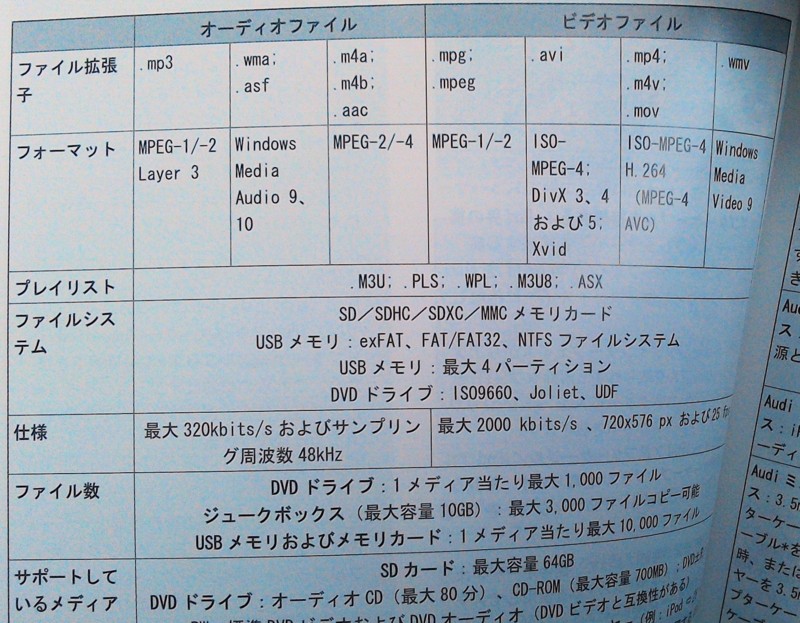 オーディオファイル ビデオファイル
ファイル拡張子 .mp3 .wma; .asf .m4a; .m4b; .aac .mpg; .mpeg .avi .mp4; .m4v; .mov .wmv
フォーマット MPEG-1/-2 Layer 3 Windows Media Audio 9、10 MPEG-2/-4 MPEG-1/-2 ISO-MPEG-4; DivX 3、4 および 5; Xvid ISO-MPEG-4 H.264 (MPEG-4 AVC) Windows Media Video 9
プレイリスト .M3U; .PLS; .WPL; .M3U8; .ASX
ファイルシステム SD／SDHC／SDXC／MMC メモリカード
USB メモリ：exFAT、FAT/FAT32、NTFS ファイルシステム
USB メモリ：最大 4 パーティション
DVD ドライブ：ISO9660、Joliet、UDF
仕様 最大 320kbits/s およびサンプリング周波数 48kHz 最大 2000 kbits/s 、720x576 px および 25
ファイル数 DVD ドライブ：1 メディア当たり最大 1,000 ファイル
ジュークボックス（最大容量 10GB）：最大 3,000 ファイルコピー可能
USB メモリおよびメモリカード：1 メディア当たり最大 10,000 ファイル
サポートしているメディア SD カード：最大容量 64GB
DVD ドライブ：オーディオ CD（最大 80 分）、CD-ROM（最大容量 700MB）；DVD
標準 DVD ビデオおよび DVD オーディオ（DVD ビデオと互換性がある）
（例：iPod
Audi
ス
源と
Audi
ス：iP
ーディ
Audi ミ
ス：3.5m
ターケー
ーブル*を
時、または
ヤーを 3.5m
プターケー
ケーブ